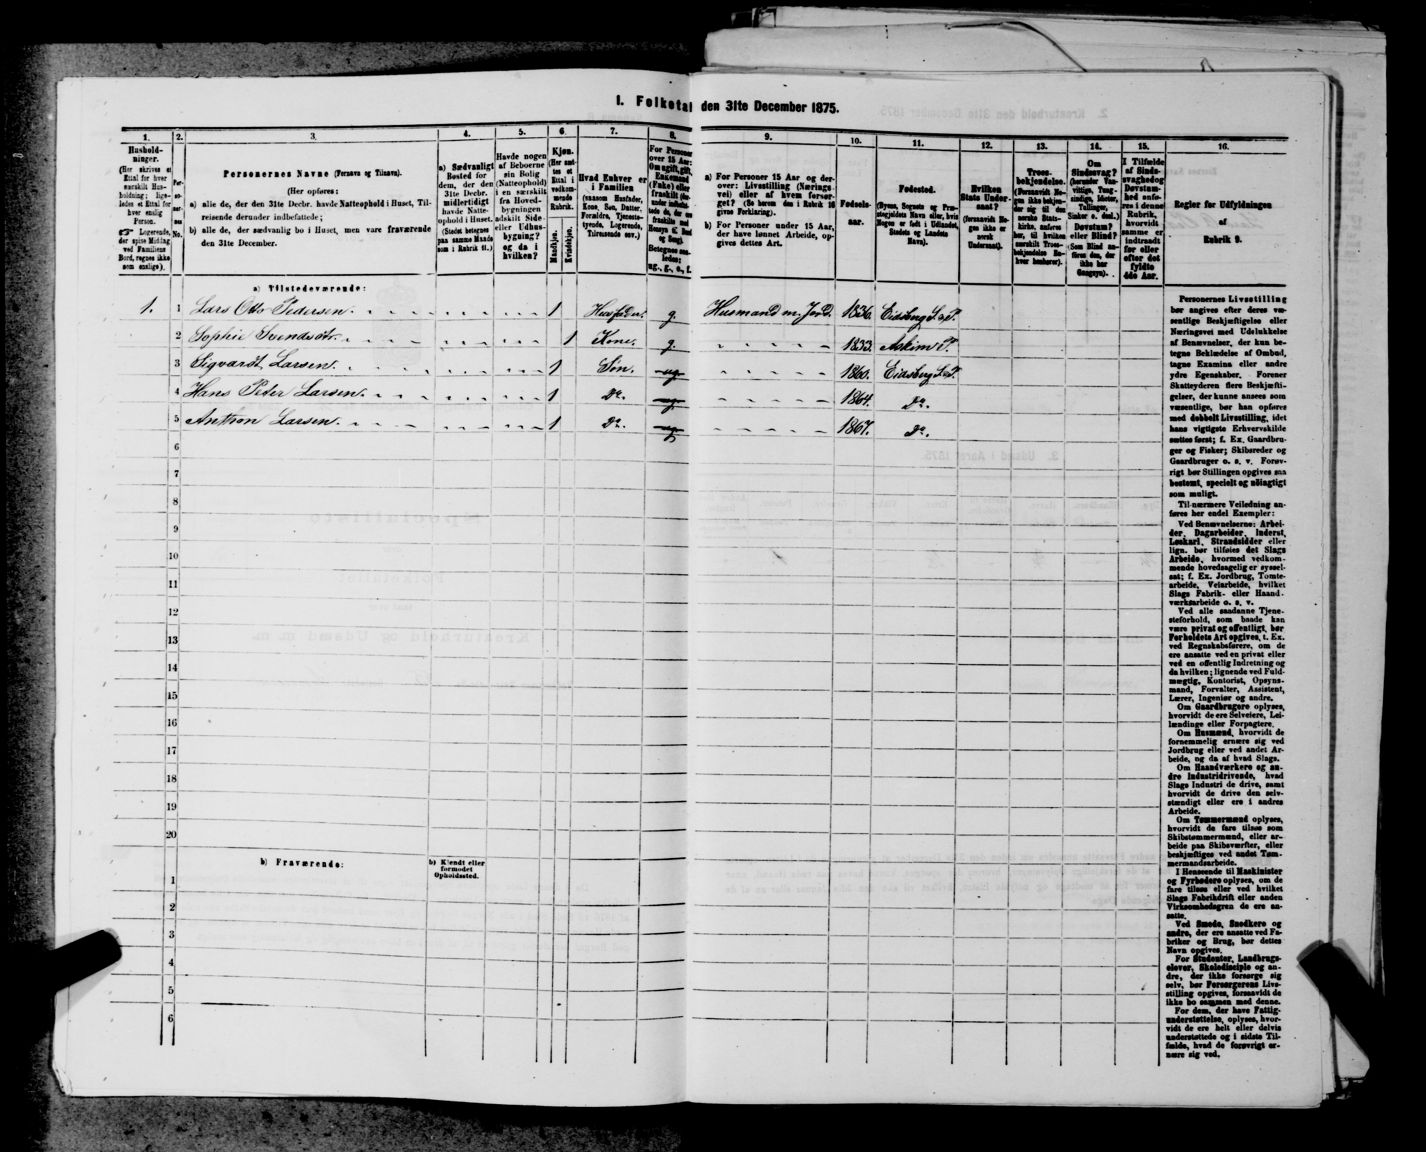 I. Folketal den 31te December 1875.
1. 2. 3. 4. 5. 6. 7. 8. 9. 10. 11. 12. 13. 14. 15. 16.
Hushold-
ninger.
(Her skrives et
Ettal for hver
særskilt Hus-
holdning; lige-
ledes et Ettal for
hver enslig
Person.
☞ Logerende,
der spise Middag
ved Familiens
Bord, regnes ikke
som enslige).
Per-
so-
ner-
nes
No.
Personernes Navne (Fornavn og Tilnavn).
(Her opføres:
a) alle de, der den 31te Decbr. havde Natteophold i Huset, Til-
reisende derunder indbefattede;
b) alle de, der sædvanlig bo i Huset, men vare fraværende
den 31te December.
a) Sædvanligt
Bosted for
dem, der den
31te Decbr.
midlertidigt
havde Natte-
ophold i Huset.
(Stedet betegnes
paa samme Maade
som i Rubrik 11.)
Havde nogen
af Beboerne
sin Bolig
(Natteophold)
i en særskilt
fra Hoved-
bygningen
adskilt Side-
eller Udhus-
bygning?
og da i
hvilken?
Kjøn.
(Her sæt-
tes et
Ettal i
vedkom-
mende
Rubrik.
Mandkjøn.
Kvindekjøn.
Hvad Enhver er
i Familien
(saasom Husfader,
Kone, Søn, Datter,
Forældre, Tjeneste-
tyende, Logerende,
Tilreisende osv.)
For Personer
over 15 Aar:
Om ugift, gift,
Enkemand
(Enke) eller
fraskilt
Betegnes saa-
ledes:
ug., g., e., f.
a) For Personer 15 Aar og der-
over: Livsstilling (Nærings-
vei) eller af hvem forsør-
get? (Se herom den i Rubrik 16
givne Forklaring).
b) For Personer under 15 Aar,
der have lønnet Arbeide, op-
gives dettes Art.
Fødsels-
aar.
Fødested.
(Byens, Sognets og Præ-
stegjeldets Navn eller, hvis
Nogen er født i Udlandet,
Stedets og Landets
Navn).
Hvilken
Stats Under-
saat?
(forsaavidt No-
gen ikke er
norsk
Undersaat).
Troes-
bekjendelse.
(Forsaavidt No-
gen ikke bekjen-
der sig til den
norske Stats-
kirke, anføres
her, til hvilken
særskilt Troes-
bekjendelse En-
hver henhører).
Om
Sindssvag?
(herunder Van-
vittige, Tung-
sindige, Idioter,
Tullinger,
Sinker o. desl.)
Døvstum?
eller Blind?
(Som Blind an-
føres den, der
ikke har
Gangsyn).
I Tilfælde
af Sinds-
svaghed og
Døvstum-
hed anfø-
res i denne
Rubrik,
hvorvidt
samme er
indtraadt
før eller
efter det
fyldte
4de Aar.
Regler for Udfyldningen
af
Rubrik 9.
a) Tilstedeværende:
1. 1 Lars Otto Pedersen. 1 Husfader. g. Husmand m. Jord. 1836. Eidsberg S. & P.
2 Sophie Svendsdtr. 1 Kone. g. 1833. Askim P.
3 Sigvardt Larsen. 1 Søn. ug. 1860. Eidsberg S. & P.
4 Hans Peter Larsen. 1 Do. ug. 1864. Do.
5 Anthon Larsen. 1 Do. ug. 1867. Do.
6
7
8
9
10
11
12
13
14
15
16
17
18
19
20
b) Fraværende:
b) Kjendt eller
formodet
Opholdssted.
1
2
3
4
5
6
Personernes Livsstilling
bør angives efter deres væ-
sentlige Beskjæftigelse eller
Næringsvei med Udelukkelse
af Benævnelser, der kun be-
tegne Beklædelse af Ombud,
tagne Examina eller andre
ydre Egenskaber. Forener
Skatteyderen flere Beskjæfti-
gelser, der kunne ansees som
væsentlige, bør han opføres
med dobbelt Livsstilling, idet
hans vigtigste Erhvervskilde
sættes først; f. Ex. Gaardbru-
ger og Fisker; Skibsreder og
Gaardbruger o. s. v. Forøv-
rigt bør Stillingen opgives saa
bestemt, specielt og nöiagtigt
som muligt.
Til nærmere Veiledning an-
føres her endel Exempler:
Ved Benævnelserne: Arbei-
der, Dagarbeider, Inderst,
Løskarl, Strandsidder eller
lign. bør tilføies det Slags
Arbeide, hvormed vedkom-
mende hovedsagelig er syssel-
sat; f. Ex. Jordbrug, Tomte-
arbeide, Veiarbeide, hvilket
Slags Fabrik- eller Haand-
værksarbeide o. s. v.
Ved alle saadanne Tjene-
steforhold, som baade kan
være privat og offentligt, bør
Forholdets Art opgives, t. Ex.
ved Regnskabsførere, om de
ere ansatte ved en privat eller
ved en offentlig Indretning og
da hvilken; lignende ved Fuld-
mægtig, Kontorist, Opsyns-
mand, Forvalter, Assistent,
Lærer, Ingeniør og andre.
Om Gaardbrugere oplyses,
hvorvidt de ere Selveiere, Lei-
lændinge eller Forpagtere.
Om Husmænd, hvorvidt de
fornemmelig ernære sig ved
Jordbrug eller ved andet Ar-
beide, og da af hvad Slags.
Om Haandværkere og an-
dre Industridrivende, hvad
Slags Industri de drive, samt
hvorvidt de drive den selv-
stændigt eller ere i andres
Arbeide.
Om Tømmermænd oplyses,
hvorvidt de fare tilsøs som
Skibstømmermænd, eller ar-
beide paa Skibsværfter, eller
beskjæftiges ved andet Tøm-
mermandsarbeide.
I Henseende til Maskinister
og Fyrbødere oplyses, om de
fare tilsøs eller ved hvilket
Slags Fabrikdrift eller anden
Virksomhedsgren de ere an-
satte.
Ved Smede, Snedkere og
andre, der ere ansatte ved Fa-
briker og Brug, bør dettes
Navn opgives.
For Studenter, Landbrugs-
elever, Skoledisciple og an-
dre, der ikke forsørge sig
selv, bør Forsørgerens Livs-
stilling opgives, forsaavidt de
ikke bo sammen med denne.
For dem, der have Fattig-
understøttelse, oplyses, hvor-
vidt de ere helt eller delvis
understøttede og i sidste Til-
fælde, hvad de forøvrigt er-
nære sig ved.